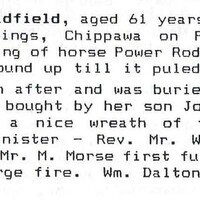 dfield, aged 61 years
ings, Chippawa on F
ng of horse Power Rod
ound up till it puled
n after and was burie
bought by her son Jo
a nice wreath of
nister - Rev. Mr. W
Mr. M. Morse first fu
rge fire. Wm. Dalton